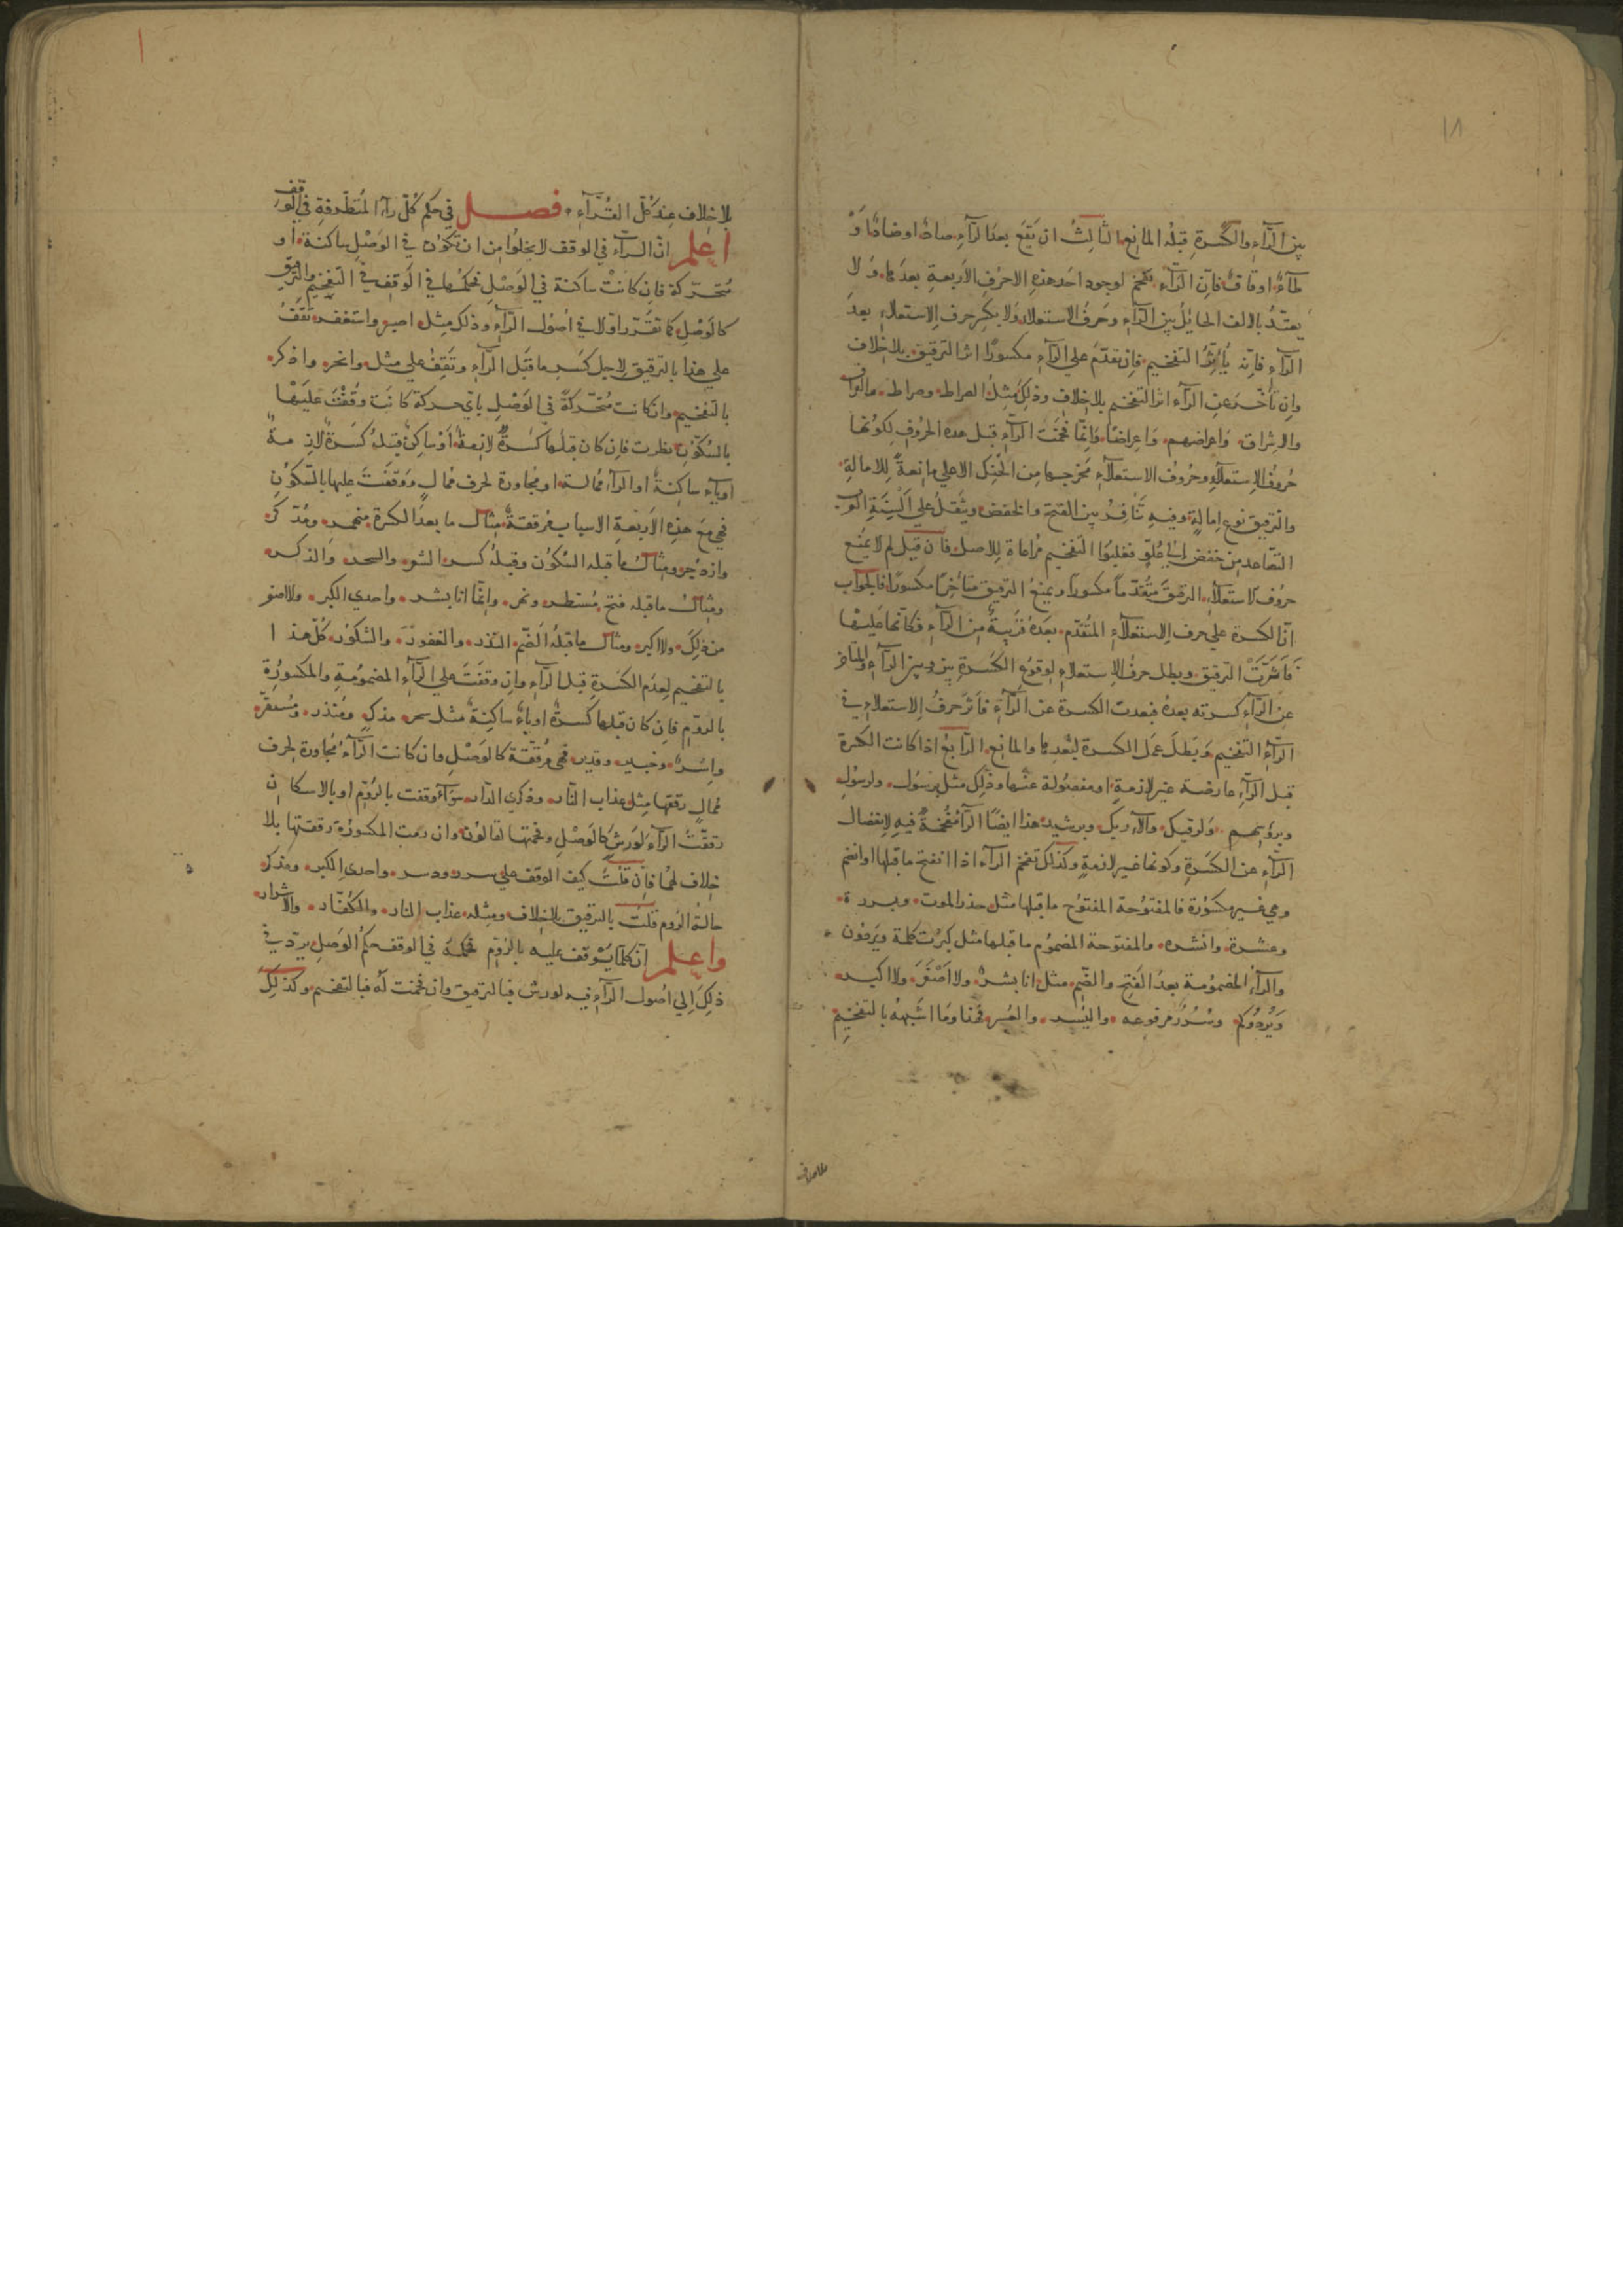 ١٨
بين الرّآءِ والكسرةِ قبلهُ المانِع الثالِثُ ان تقع بعدَ الرّآءِ صادٌ اوضادٌ اوْ
طآءٌ اوقافٌ فاِنّ الرّآءَ تفخم لوجود احَد هذهِ الاحرُفِ الاَربعةِ بعدَها وَلا
يعتدُّ بالالف الحايلُ بين الرّآءِ وحَرفُ الاستعلاءِ ولا بكسر حرف الاستعلاءِ بعدَ
الرّآءِ فاِنّه يُأثِّرُ التفخيم فاِن تقدّمَ علي الرّآءِ مكسورًا اثر الترقيق بلا خلاف
وان تأخّرَ عن الرّآءِ اثر التفخيم بلا خلاف وذلك مثلُ الصراط وصراط
والاِشراق واعراضهم واِعراضًا وَاِنّما فخمَت الرّآء قبل هذه الحروُفِ لكوُنها
حُروُف الاِستعلآءِ وحُروُف الاستعلآءِ مخرجها من الحنَكِ الاعلي مانعةٌ للامالةِ
والترقيق نوع اِمالةٍ وفيهِ تنافُرُ بين الفتح والخفض ويثقلُ علي اَلسِنَةِ العرب
التصاعد من خفض الى عُلوٍّ فغلبوُا التفخيم مُراعاة للاصل فاِن قيل لم لا يمنَع
حروُف الاستعلآءِ الترقيق متقدّمًا مكسورًا ويمنعُ الترقيق متأخرًا مكسورًا فالجواب
انّ الكسرة علي حرف الاِستعلآءِ المتقدّم بعدَهُ قريبةٌ مِن الرّآءِ فكأنها عَليها
فَاَثرتْ الترقيق وبطل حرفُ الاِستعلاءِ لوقوع الكسَرةِ بينهُ وبين الرّآءِ والمتأخر
عن الرّآءِ كسرته بعدهُ فبعدت الكسرة عن الرّآءِ فاَثر حرفُ الاِستعلاءِ في
الرّآءِ التفخيم وبَطلَ عمَل الكسرة لبُعدِها والمانِع الرّابعُ اذا كانت الكسرة
قبل الرّآءِ عارضة غير لازمةٍ او مفصُولة عنها وذلكَ مثل برَسُول ولرسُولِ
وبرؤسِهم ولرقيكَ وبرشيد هذا ايضًا الرّآءُ مفخمةٌ فيهِ لاِنفصال
الرّآءِ عن الكسَرةِ وكونها غير لازمةٍ وكذلك تفخم الرّآء اذا انفتح ما قبلها اوانضم
وهي غير مكسُوُرة فالمفتوُحة المفتوُح ما قبلها مثل حذر الموت وبررة
وعشرة وانشره والمفتوحة المضموُم ما قبلها مثل كبرُت كلمة ويَرضوُن
والرّآءُ المضموُمة بعدَ الفَتح والضّم مثل انا بشرٌ ولا اَصْغَرَ ولا اكبر
وَيُردُوكم وسُرُرٌ مرفوعه واليُسر والعُسر فخمنا ومَا اشبَههُ بالتفخيم
بلا خلاف
بلا خلافٍ عِندَ كلّ القُرّآءِ فصل في حكم كُلّ رآءِ المُتطرّفةِ في الوَقف
اعلم انّ الرّآءَ في الوقف لا يخلوُا مِن ان تكوُن في الوصْلِ ساكنة اَو
مُتحرّكة فاِن كانَتْ ساكنة في الوَصْلِ فحكمُها في الوَقفِ في التفخيمِ والترقيقِ
كالوَصْلِ كما تقَرّرَ اوّلا في اُصوُل الرّآءِ وذلك مِثل اصبر واستغفر تَقفُ
علي هذا بالترقيق لاجل كسر ما قبَل الرّآءِ وتَقفُ علي مثل وانحر واذكر
بالتفخيم وان كانت مُتحرّكةً في الوَصْلِ بايّ حركة كانَت وَقفْتَ عَليْها
بالسُكوُنِ نظرت فاِن كان قبلها كسْرةٌ لازِمةٌ اَوْ ساكنٌ قبلهُ كسَرةٌ لازِمةٌ
اوياء ساكِنةٌ اوالرّاء مُمالة او مُجاورة لحرف مُمالٍ ووَقفتَ عليها بالسّكوُنِ
فهي مَع هذِه الاَربَعةِ الاسباب مُرقّقةٌ مِثال ما بعدَ الكسَرةِ منهمر ومُدّكر
وازدُجر ومِثالُ ما قبله السّكوُن وقبلهُ كسر والسحر والذكر
ومِثالُ ما قبله فتح مُستطر ونهر وانّما انا بشر واحدي الكبر ولا اصغر
من ذلكَ ولا اكبر ومثال ما قبلهُ الضّم النذر والغفوُرُ والشكوُر كُلّ هذا
بالتفخيم لعِدم الكسَرةِ قبل الرّآءِ وان وقفتَ علي الرّآءِ المضموُمةِ والمكسوُرةِ
بالرومِ فاِن كان قبلها كسرةٌ اوياءٌ ساكنةٌ مثل سحر مدكرٍ ومُنذر ومُستقرٌّ
وخبير وقدير فهي مُرققة كالوَصْلِ وان كانت الرّآءُ مُجاورة لحرف
مُمالٍ رققها مِثل عذاب النّار وذكري الدّار سَوآءٌ وقفت بالرّومِ او بالاسكان
رققتَ الرّآءَ لِورشٍ كالوَصْلِ وفخمتها لقالوُن وان رمت المكسوُرة رققتها بلا
خلاف لهُما فاِن قلتَ كيف الوقف علي سرر ودسر واحدي الكبر ومدكر
حالة الروم قلتُ بالترقيق بلا خلاف ومِثله عذاب النار والكفّار والاشرار
واعلم انّ كلما يُوقف عليه بالرّومِ فحكمه في الوقف حكم الوَصلِ يردّ في
ذلِكَ اِلي اُصول الرّآءِ فيه لورش فبالترقيق وان فخمت لهُ فبالتفخيم وكذلِكَ